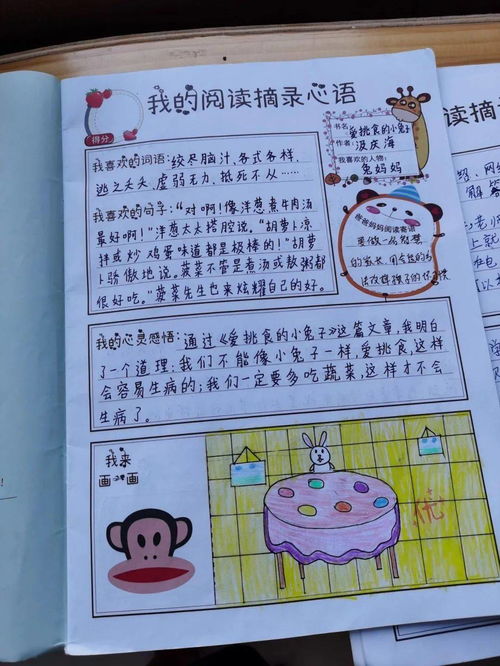 我的阅读摘录心语
得分
书名:
爱挑食的小兔子
作者:汲庆海
我喜欢的人物:
兔妈妈
我喜欢的词语:绞尽脑汁、各式各样、
逃之夭夭、虚弱无力、抵死不从……
我喜欢的句子:“对啊!像洋葱煮牛肉汤
最好啊!”洋葱太太搭腔说。“胡萝卜凉
拌或炒鸡蛋味道都是极棒的!”胡萝
卜骄傲地说。菠菜不管是煮汤或熬粥都
很好吃。”菠菜先生也来炫耀自己的好。
爸爸妈妈阅读寄语
要做一名智慧
的家长,用合适的方
法改掉孩子的坏习惯
我的心灵感悟:通过《爱挑食的小兔子》这篇文章,我明白
了一个道理:我们不能像小兔子一样,爱挑食,这样
会容易生病的;我们一定要多吃蔬菜,这样才不会
生病了。
我来
画一画
优
阅读摘